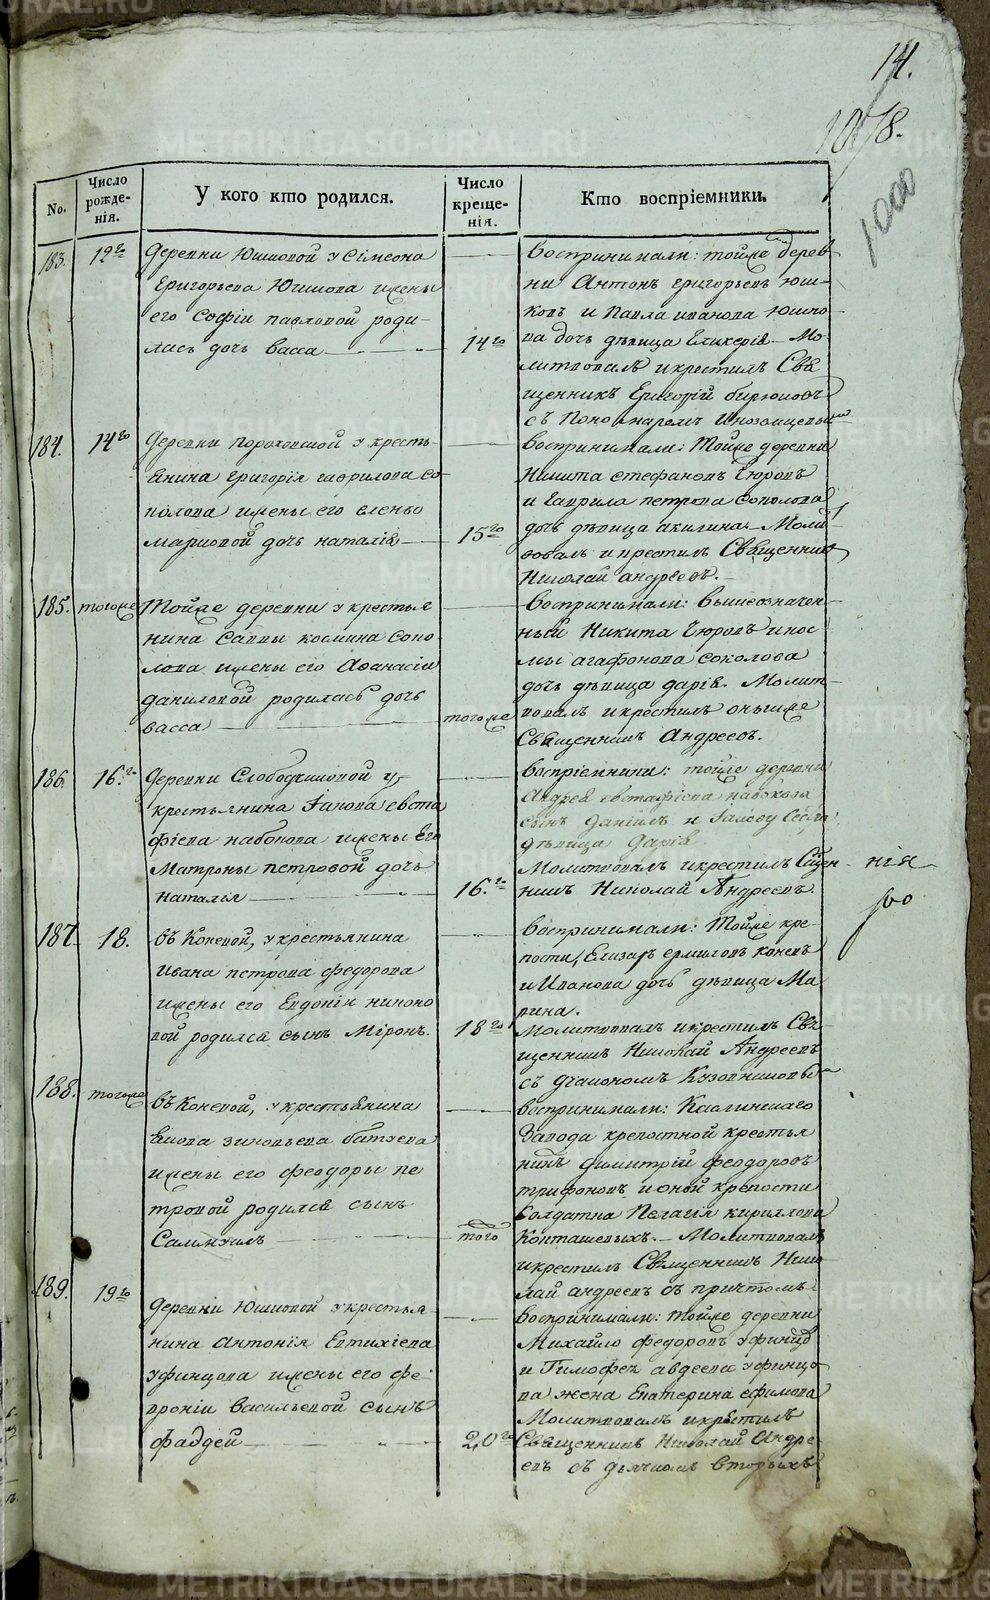 14.
1078.
1000
No.
Число рожде-нія.
У кого кто родился.
Число креще-нія.
Кто воспріемники.
183.
12го
Деревни Юшковой у Сімеона
Григорьева Юшкова жены
его Софіи Павловой роди-
лась дочь Васса
14го
Воспринимали: тойже дерев-
ни Антонъ Григорьевъ Юш-
ковъ и Павла Иванова Юшко-
ва дочь дѣвица Гликерія. Мо-
литвовалъ и крестилъ Свя
щенникъ Григорій Бирюковъ
съ Пономаремъ Иноземцовымъ
184.
14го
Деревни у кресть-
янина Григорія Гаврилова Со-
колова жены его Елены
Марковой дочь Наталія
15го
Воспринимали: Тойже деревни
Никита Стефановъ Тюровъ
и Гаврила Петрова Соколова
дочь дѣвица Акилина. Молит
вовалъ и крестилъ Священникъ
Николай Андреевъ.
185.
тогоже
Тойже деревни у крестья
нина Саввы Космина Соко-
лова жены его Афанасіи
Даниловой родилась дочь
Васса
тогоже
Воспринимали: Вышеозначен-
ный Никита Тюровъ и кос
мы Агафонова Соколова
дочь дѣвица Дарія. Молит-
вовалъ и крестилъ онъже
Священникъ Андреевъ.
186.
16.го
Деревни у
крестьянина Іакова Евста
фіева Набокова жены Его
Матроны Петровой дочь
Наталья
16.го
Воспріемники: тойже деревни
Андрея Евстафіева Набокова
сынъ Даніилъ и
дѣвица Дарія
Молитвовалъ и крестилъ Сщен-
никъ Николай Андреевъ.
нія
187.
18.
Въ Коневой, у крестьянина
Ивана Петрова Федорова
жены его Евдокіи Никоно
вой родился сынъ Міронъ.
18го
Воспринимали: Тойже кре-
пости, Елизаръ Ермиловъ Коневъ
и Иванова дочь дѣвица Ма
рина.
Молитвовалъ и крестилъ Свя-
щенникъ Николай Андреевъ
съ діакономъ
188.
тогоже
Въ Коневой, у крестьянина
Якова Зиновьева Батуева
жены его Феодоры Пе
тровой родился сынъ
Самуилъ
того
Воспринимали: Каслинскаго
Завода крепостной крестья
нинъ Димитрій Феодоровъ
Трифоновъ и оной крепости
Солдатка Пелагія Кириллова
Конташевыхъ. Молитвовалъ
и крестилъ Священникъ Нико
лай Андреевъ съ причтомъ.
189.
19го
Деревни Юшковой у крестья
нина Антонія Евтихіева
Уфинцова жены его Фе-
вроніи Васильевой сынъ
Фаддей
20го
Воспринимали: тойже деревни
Михайло Федоровъ Уфинцов
и Тимофея Авдеева Уфинцо
ва жена Екатерина Ефимова
Молитвовалъ и крестилъ
Священникъ Николай Андре
евъ съ дьячкомъ Вторыхъ